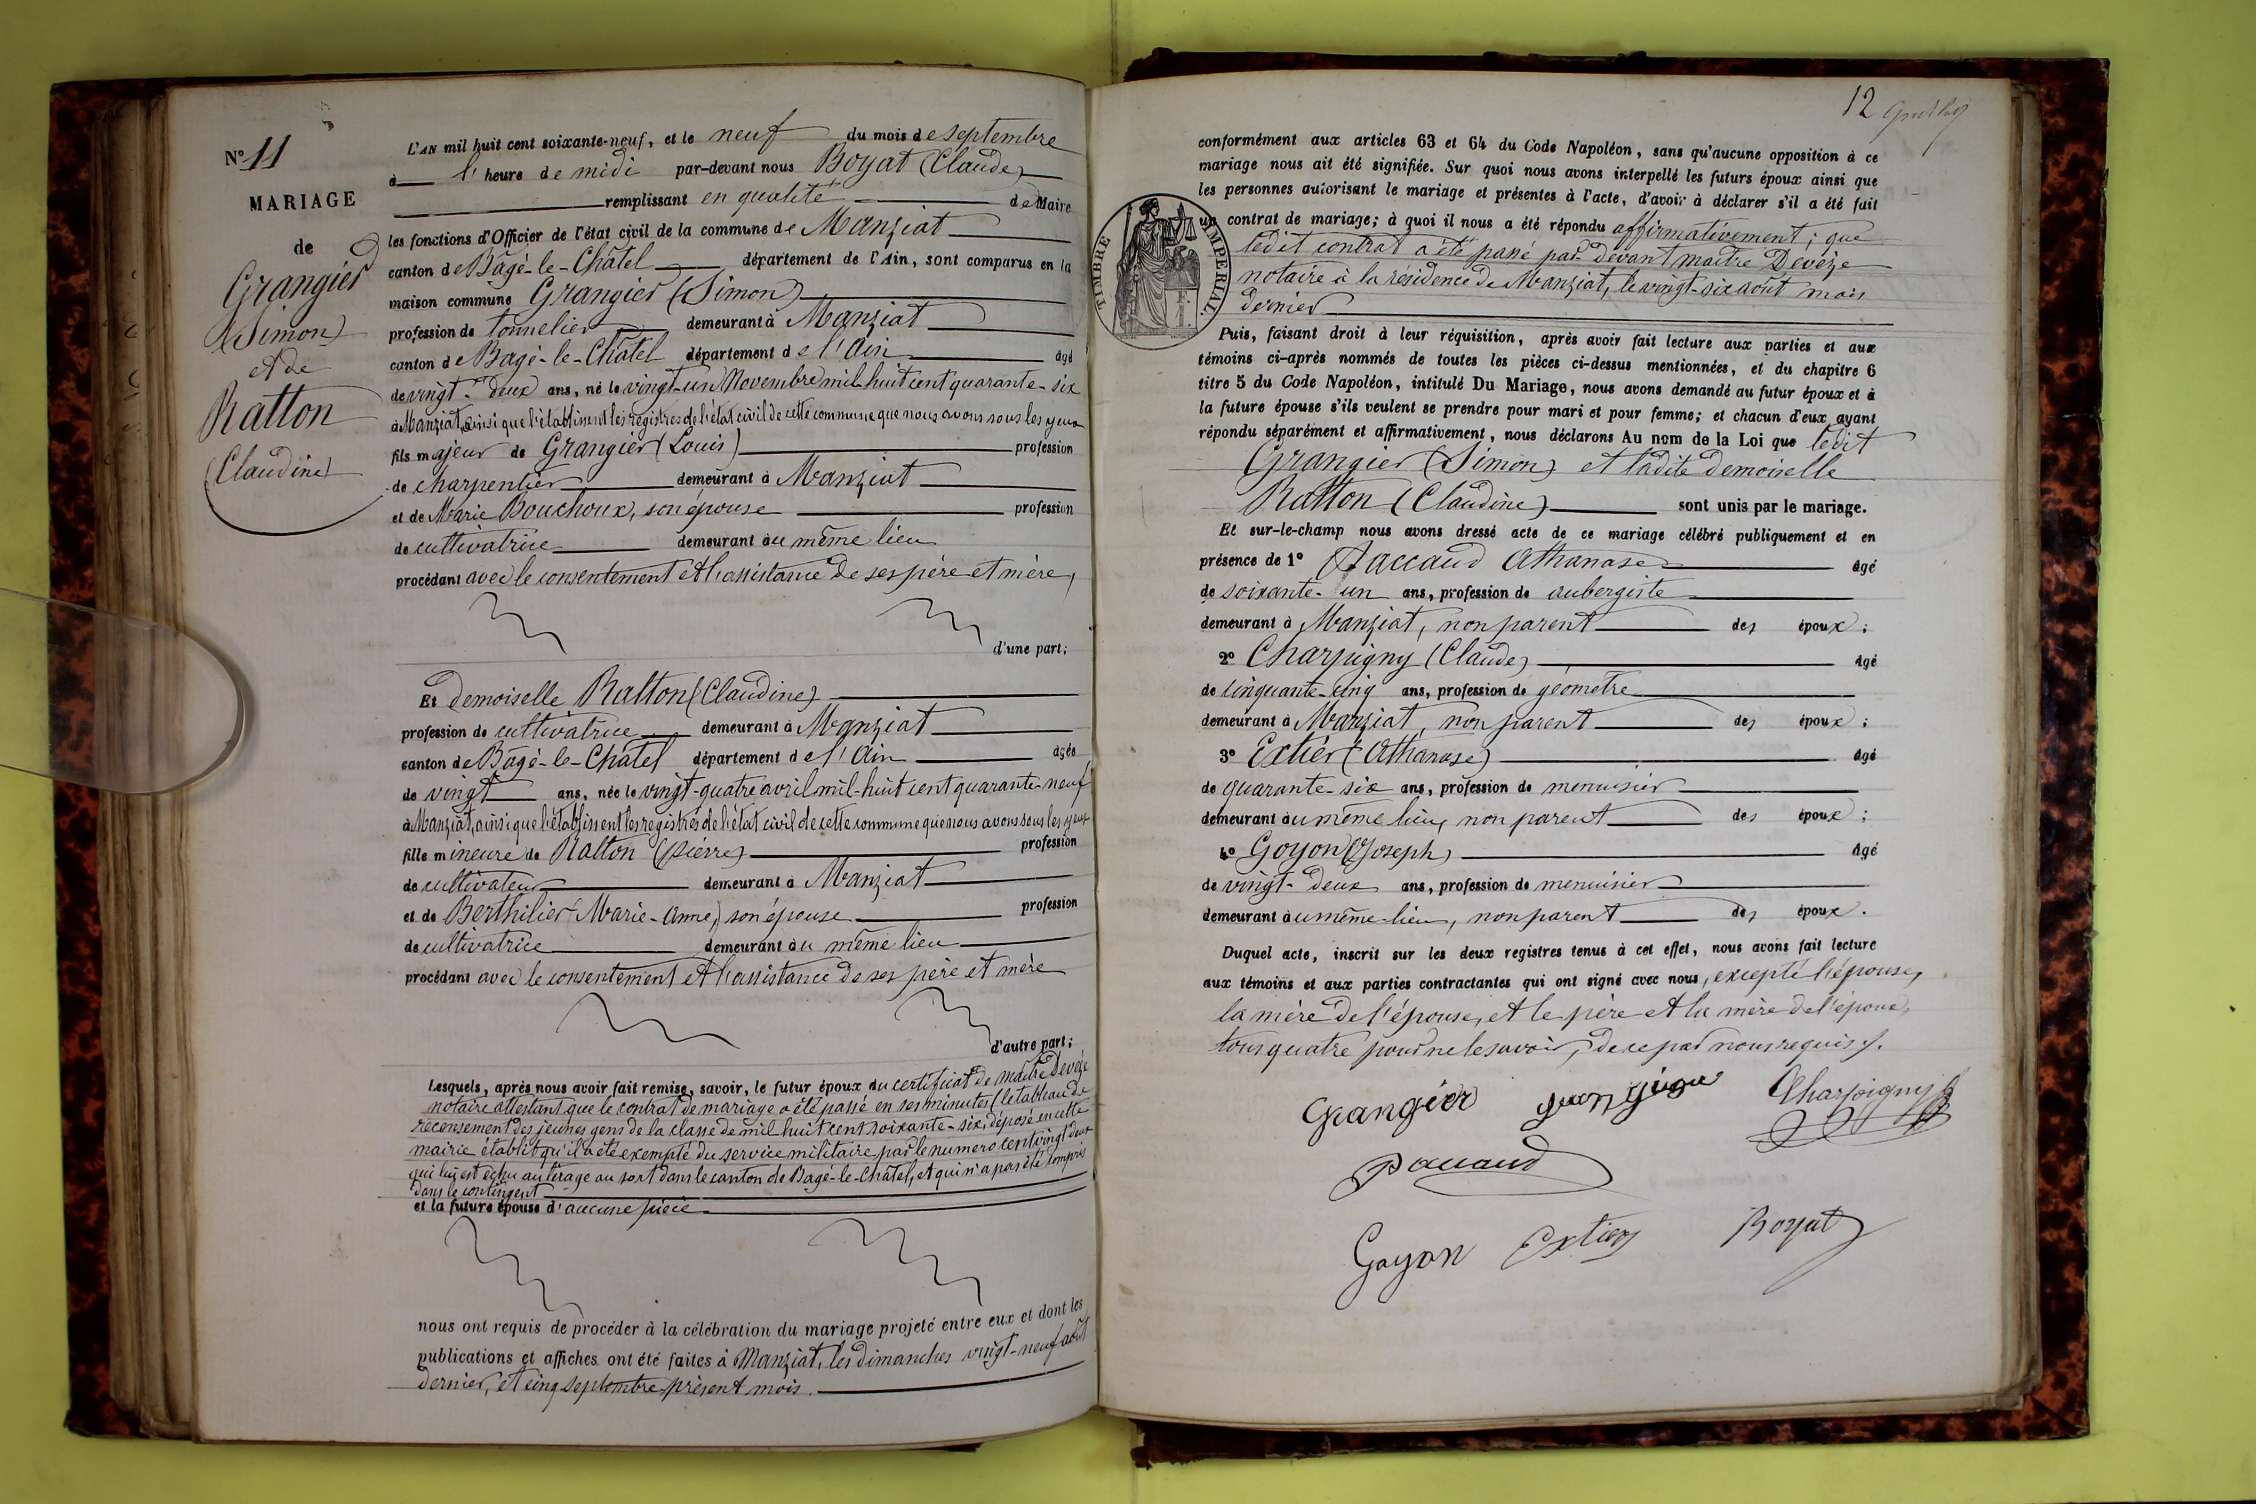 N° 11
MARIAGE
de
Grangier
(Simon)
et de
Ratton
(Claudine)
L'AN mil huit cent soixante-neuf, et le neuf du mois de septembre
à l'heure de midi par-devant nous Boyat (Claude)
remplissant en qualité de Maire
les fonctions d'Officier de l'état civil de la commune de Manziat
canton de Bâgé-le-Châtel département de l'Ain, sont comparus en la
maison commune Grangier (Simon)
profession de tonnelier demeurant à Manziat
canton de Bagé-le-Châtel département de l'Ain âgé
de vingt-deux ans, né le vingt-un Novembre mil huit cent quarante-six
à Manziat, ainsi que l'établissent les registres de l'état civil de cette commune que nous avons sous les yeux
fils majeur de Grangier (Louis) profession
de charpentier demeurant à Manziat
et de Marie Bouchoux, son épouse profession
de cultivatrice demeurant au même lieu
procédant avec le consentement et l'assistance de ses père et mère,
d'une part;
Et demoiselle Ratton (Claudine)
profession de cultivatrice demeurant à Manziat
canton de Bâgé-le-Châtel département de l'Ain âgée
de vingt ans, née le vingt-quatre avril mil-huit cent quarante-neuf
à Manziat, ainsi que l'établissent les registres de l'état civil de cette commune que nous avons sous les yeux
fille mineure de Ratton (pierre) profession
de cultivateur demeurant à Manziat
et de Berthilier (Marie-Anne) son épouse profession
de cultivatrice demeurant au même lieu
procédant avec le consentement et l'assistance de ses père et mère
d'autre part;
Lesquels, après nous avoir fait remise, savoir, le futur époux du certificat de maître Devèze
notaire attestant que le contrat de mariage a été passé en ses minutes (le tableau de
recensement des jeunes gens de la classe de mil huit cent soixante-six, déposé en cette
mairie établit qu'il a été exempté du service militaire par le numéro cent vingt deux
qui lui est échu au tirage au sort dans le canton de Bagé-le-Châtel, et qui n'a pas été compris
dans le contingent
et la future épouse d'aucune pièce
nous ont requis de procéder à la célébration du mariage projeté entre eux et dont les
publications et affiches ont été faites à Manziat, les dimanches vingt-neuf août
dernier, et cinq septembre présent mois.
12
conformément aux articles 63 et 64 du Code Napoléon, sans qu'aucune opposition à ce
mariage nous ait été signifiée. Sur quoi nous avons interpellé les futurs époux ainsi que
les personnes autorisant le mariage et présentes à l'acte, d'avoir à déclarer s'il a été fait
un contrat de mariage; à quoi il nous a été répondu affirmativement; que
ledit contrat a été passé par devant maître Devèze
notaire à la résidence de Manziat, le vingt-six août mois
dernier
TIMBRE IMPERIAL.
Puis, faisant droit à leur réquisition, après avoir fait lecture aux parties et aux
témoins ci-après nommés de toutes les pièces ci-dessus mentionnées, et du chapitre 6
titre 5 du Code Napoléon, intitulé Du Mariage, nous avons demandé au futur époux et à
la future épouse s'ils veulent se prendre pour mari et pour femme; et chacun d'eux ayant
répondu séparément et affirmativement, nous déclarons Au nom de la Loi que ledit
Grangier (Simon) et ladite demoiselle
Ratton (Claudine) sont unis par le mariage.
Et sur-le-champ nous avons dressé acte de ce mariage célébré publiquement et en
présence de 1° Paccaud Athanase âgé
de soixante-un ans, profession de aubergiste
demeurant à Manziat, non parent des époux;
2° Charpigny (Claude) âgé
de cinquante-cinq ans, profession de géomètre
demeurant à Manziat, non parent des époux;
3° Extier (Athanase) âgé
de quarante-six ans, profession de menuisier
demeurant au même lieu, non parent des époux;
4° Goyon (Joseph) âgé
de vingt-deux ans, profession de menuisier
demeurant au même lieu, non parent des époux.
Duquel acte, inscrit sur les deux registres tenus à cet effet, nous avons fait lecture
aux témoins et aux parties contractantes qui ont signé avec nous, excepté l'épouse,
la mère de l'épouse, et le père et la mère de l'époux,
tous quatre pour ne le savoir, de ce par nous requis.
Grangier Charpigny
Paccaud
Goyon Extier Boyat